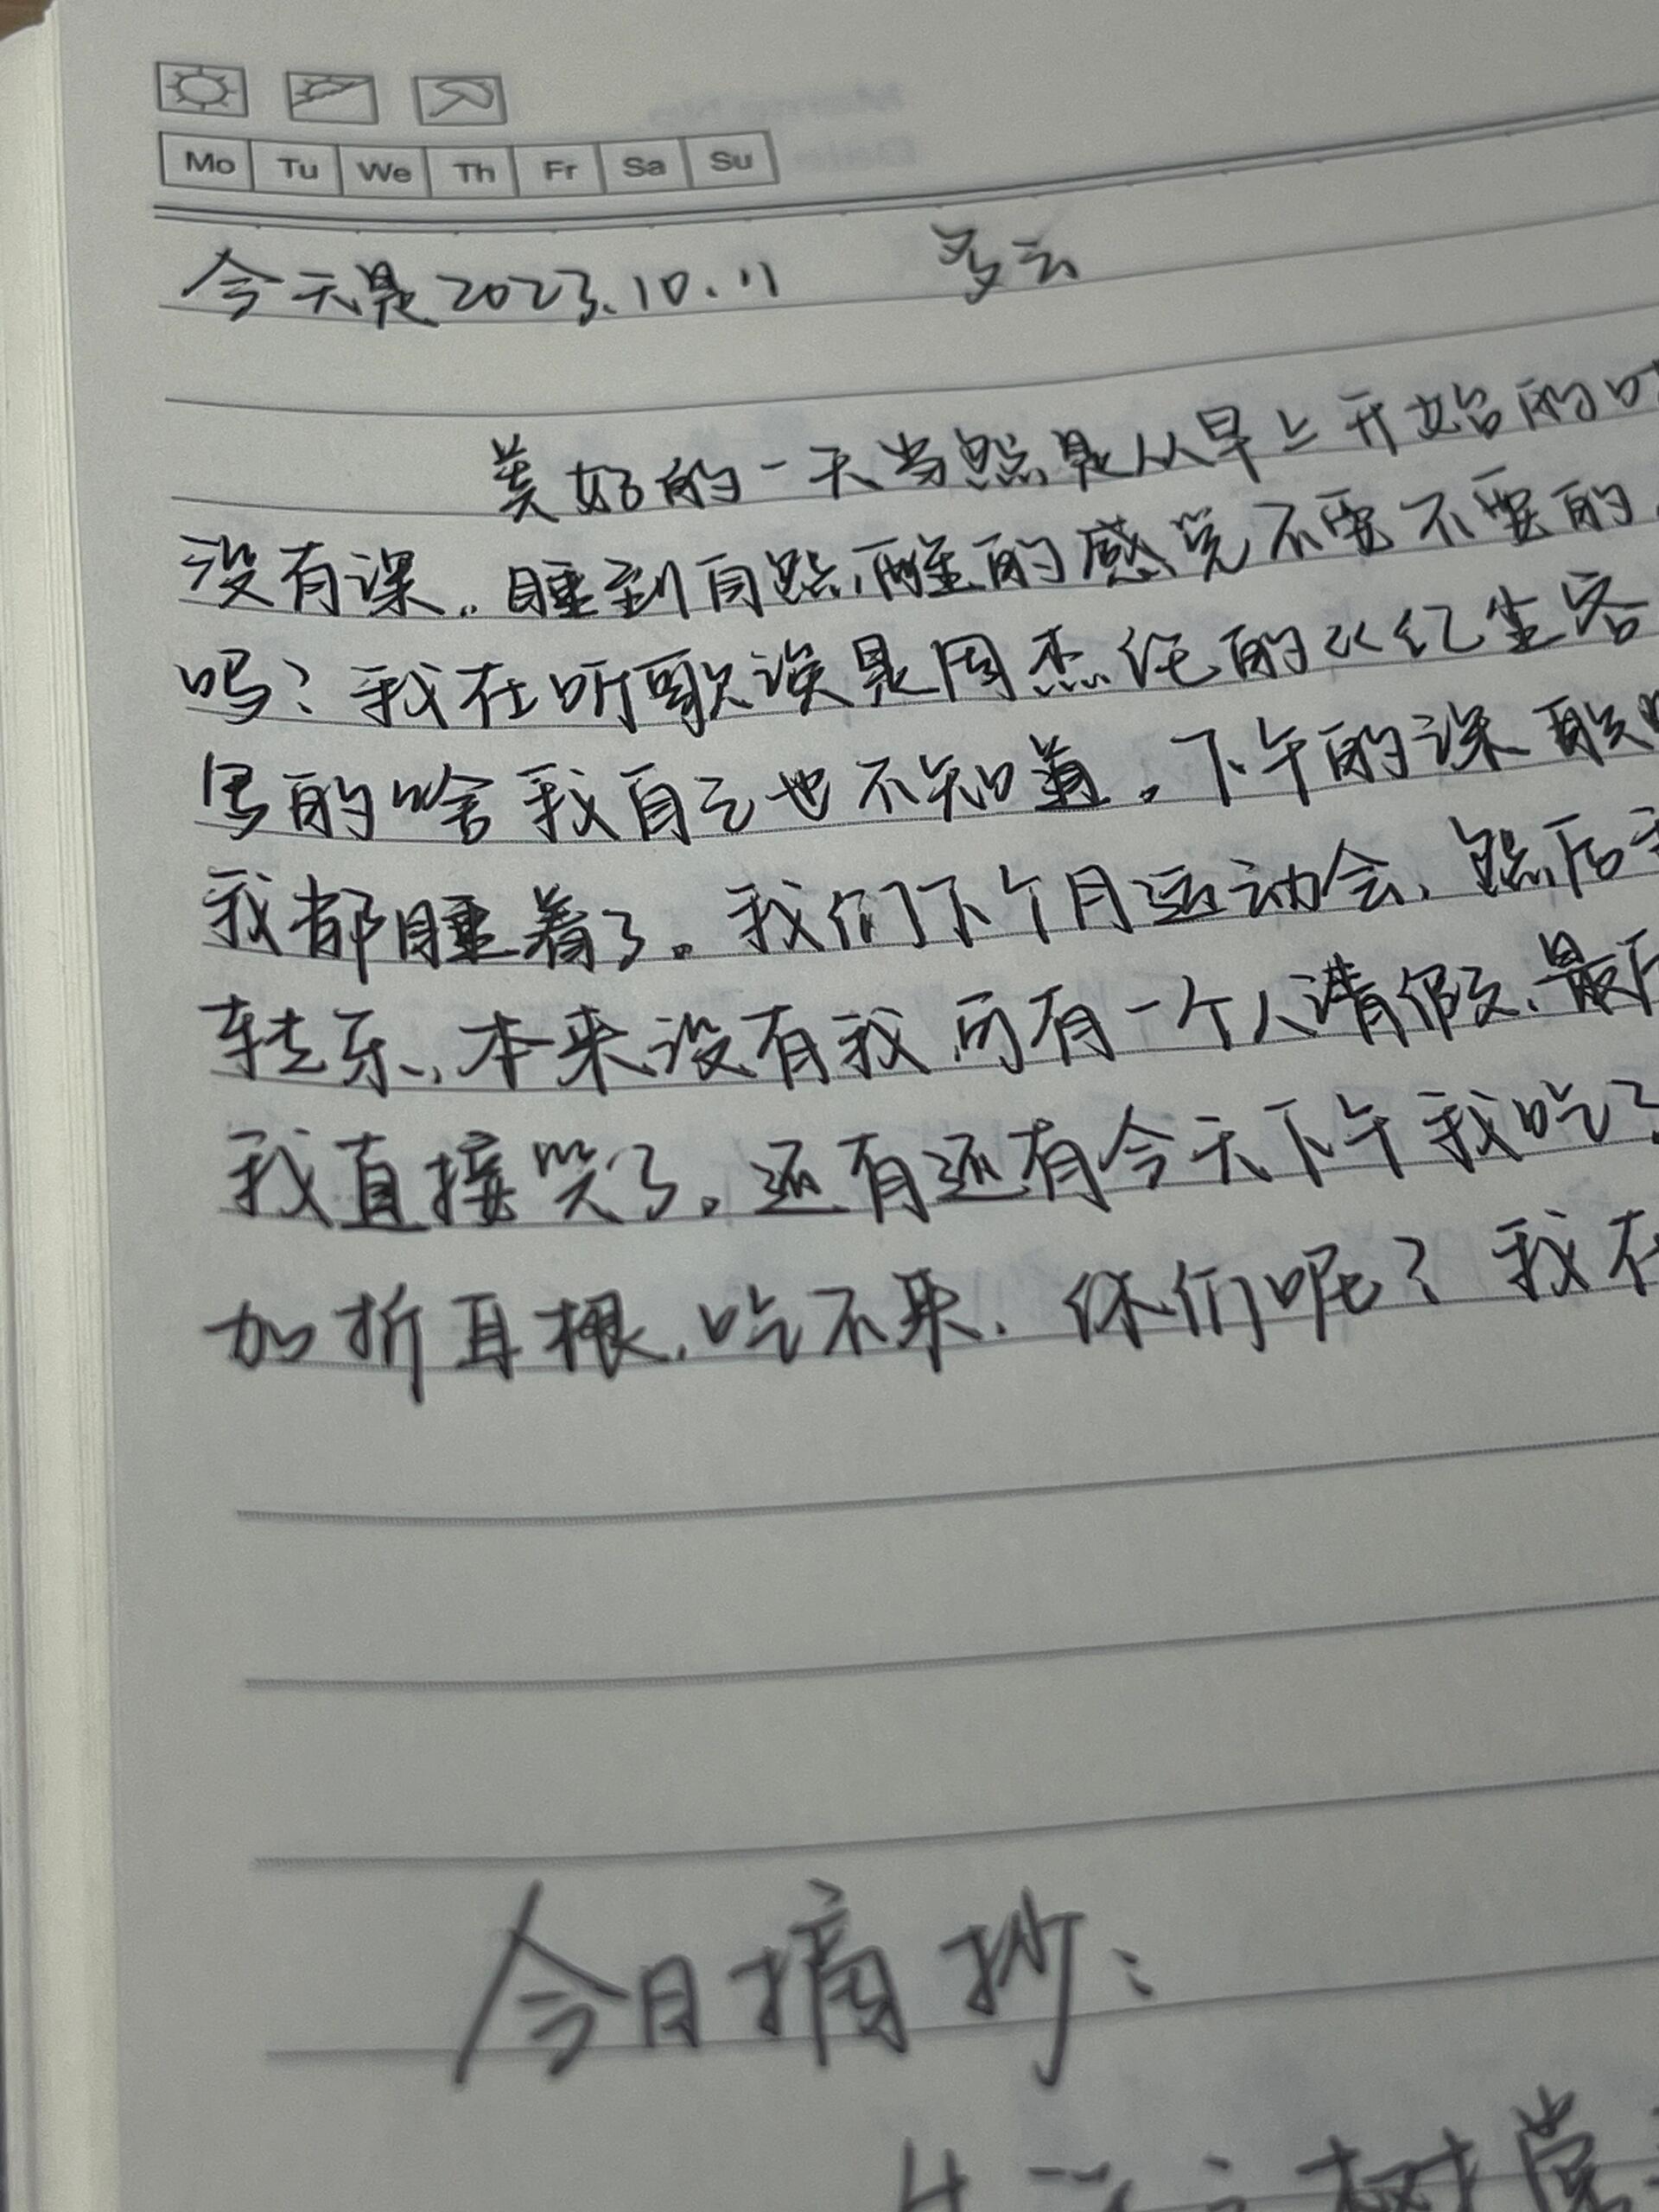 Mo Tu We Th Fr Sa Su
今天是2023.10.11 多云
美好的一天当然是从早上开始的
没有课..睡到自然醒的感觉不要不要的
吗?我在听歌诶是周杰伦的红尘客
写的啥我自己也不知道。下午的课
我都睡着了。我们下个月运动会、然后
本来没有我 可有一个人请假、最
我直接笑了。还有还有今天下午我吃了
加折耳根,吃不来. 你们呢?我在
今日摘抄: